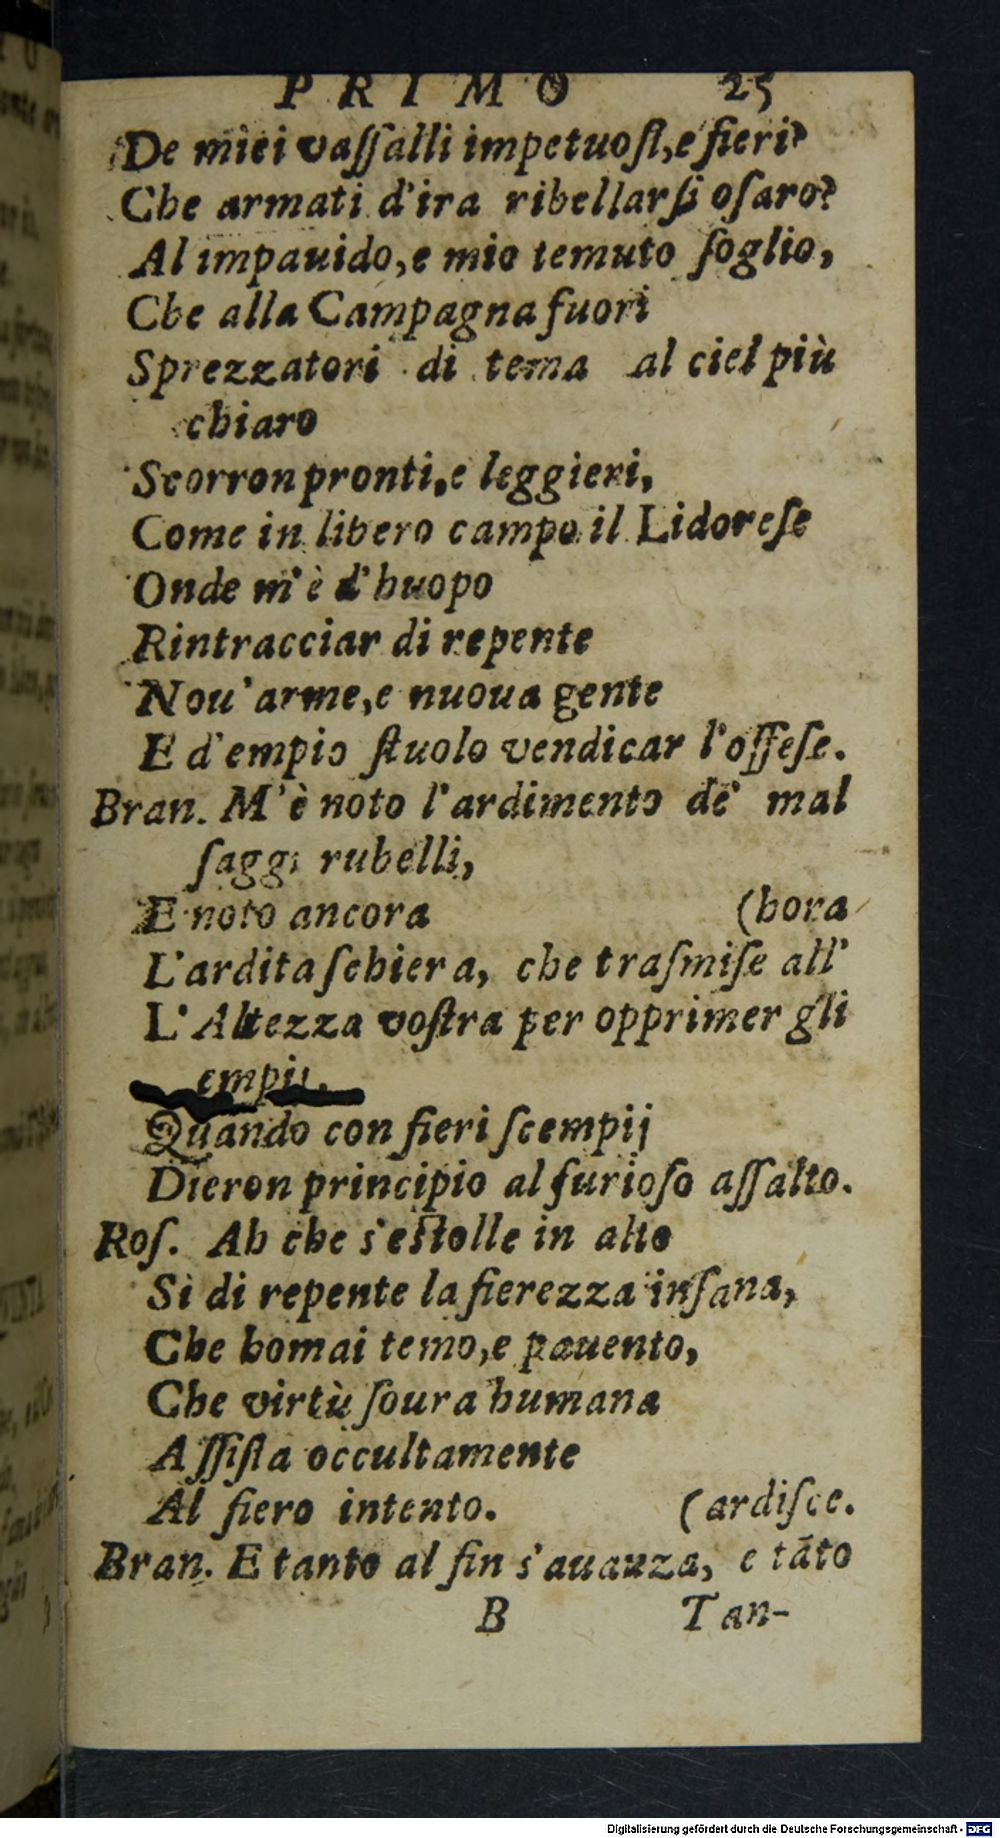 PRIMO 25
De miei vaſſalli impetuoſi, e fieri?
Che armati d'ira ribellarſi oſaro?
Al impauido, e mio temuto ſoglio,
Che alla Campagna fuori
Sprezzatori di tema al ciel più
chiaro
Scorron pronti, e leggieri,
Come in libero campo il Lidoreſe
Onde m'è d'huopo
Rintracciar di repente
Nou'arme, e nuoua gente
E d'empio ſtuolo vendicar l'offeſe.
Bran. M'è noto l'ardimento de' mal
ſaggi rubelli,
E noto ancora (hora
L'ardita ſchiera, che traſmiſe all'
L'Altezza voſtra per opprimer gli
empij.
Quando con fieri ſcempij
Dieron principio al furioſo aſſalto.
Roſ. Ah che s'eſtolle in alto
Si di repente la fierezza inſana,
Che homai temo, e pauento,
Che virtù ſoura humana
Aſſiſta occultamente
Al fiero intento. (ardiſce.
Bran. E tanto al fin s'auauza, e tãto
B Tan-
Digitalisierung gefördert durch die Deutsche Forschungsgemeinschaft - DFG